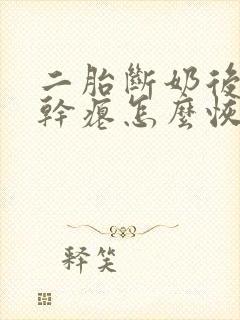 二胎斷奶後
幹癟怎麼恢
釋笑